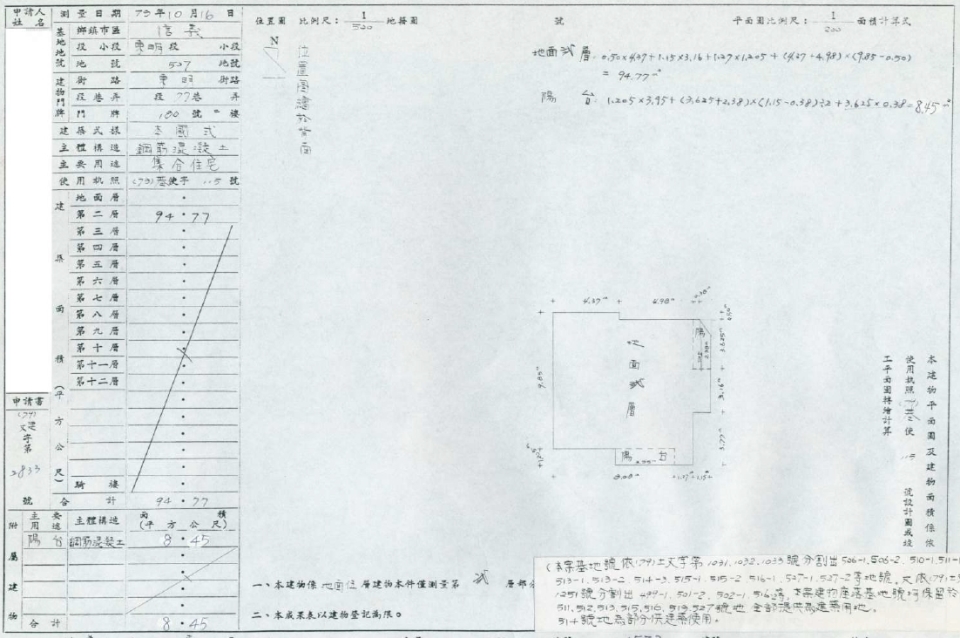 申請人姓名
測量日期 79年10月16日
基地地號
鄉鎮市區 信義
段小段 東明段 小段
地號 527 地號
建物門牌
街路 東明 街路
段巷弄 段77巷 弄
門牌 100號 樓
建築式樣 本國式
主體構造 鋼筋混凝土
主要用途 集合住宅
使用執照 (79)基使字 號
建築面積(平方公尺)
地面層
第二層 94.77
第三層
第四層
第五層
第六層
第七層
第八層
第九層
第十層
第十一層
第十二層
騎樓
合計 94.77
申請書
(79)
字第
2833
號
附屬建物
主要用途 主體構造 面積(平方公尺)
陽台 鋼筋混凝土 8.45
合計 8.45
位置圖 比例尺:1/500 地籍圖
N
位置圖繪於背面
號
平面圖比例尺:1/200 面積計算式
地面貳層:0.50×4.37+1.15×3.16+1.27×1.205+(4.37+4.98)×(9.85-0.50)
= 94.77㎡
陽台:1.205×3.95+(3.625+2.38)×(1.15-0.38)÷2+3.625×0.38=8.45㎡
地面貳層
陽台
陽
本建物平面圖及建物面積係依
使用執照
號設計圖或竣
工平面圖轉繪計算
一、本建物係 層建物本件僅測量第 貳 層部
二、本成果表以建物登記為限。
(本案基地號依(79)土文字第1031.1032.1033號分割出506-1.506-2.510-1.511-1
513-1.513-2.514-3.515-1.515-2.516-1.527-1.527-2等地號,又依(79)土
1251號分割出499-1.501-2.502-1.516
511.512.513.515.516.519.527號地全部提供為建築用地。
514號地為部分供建築使用。